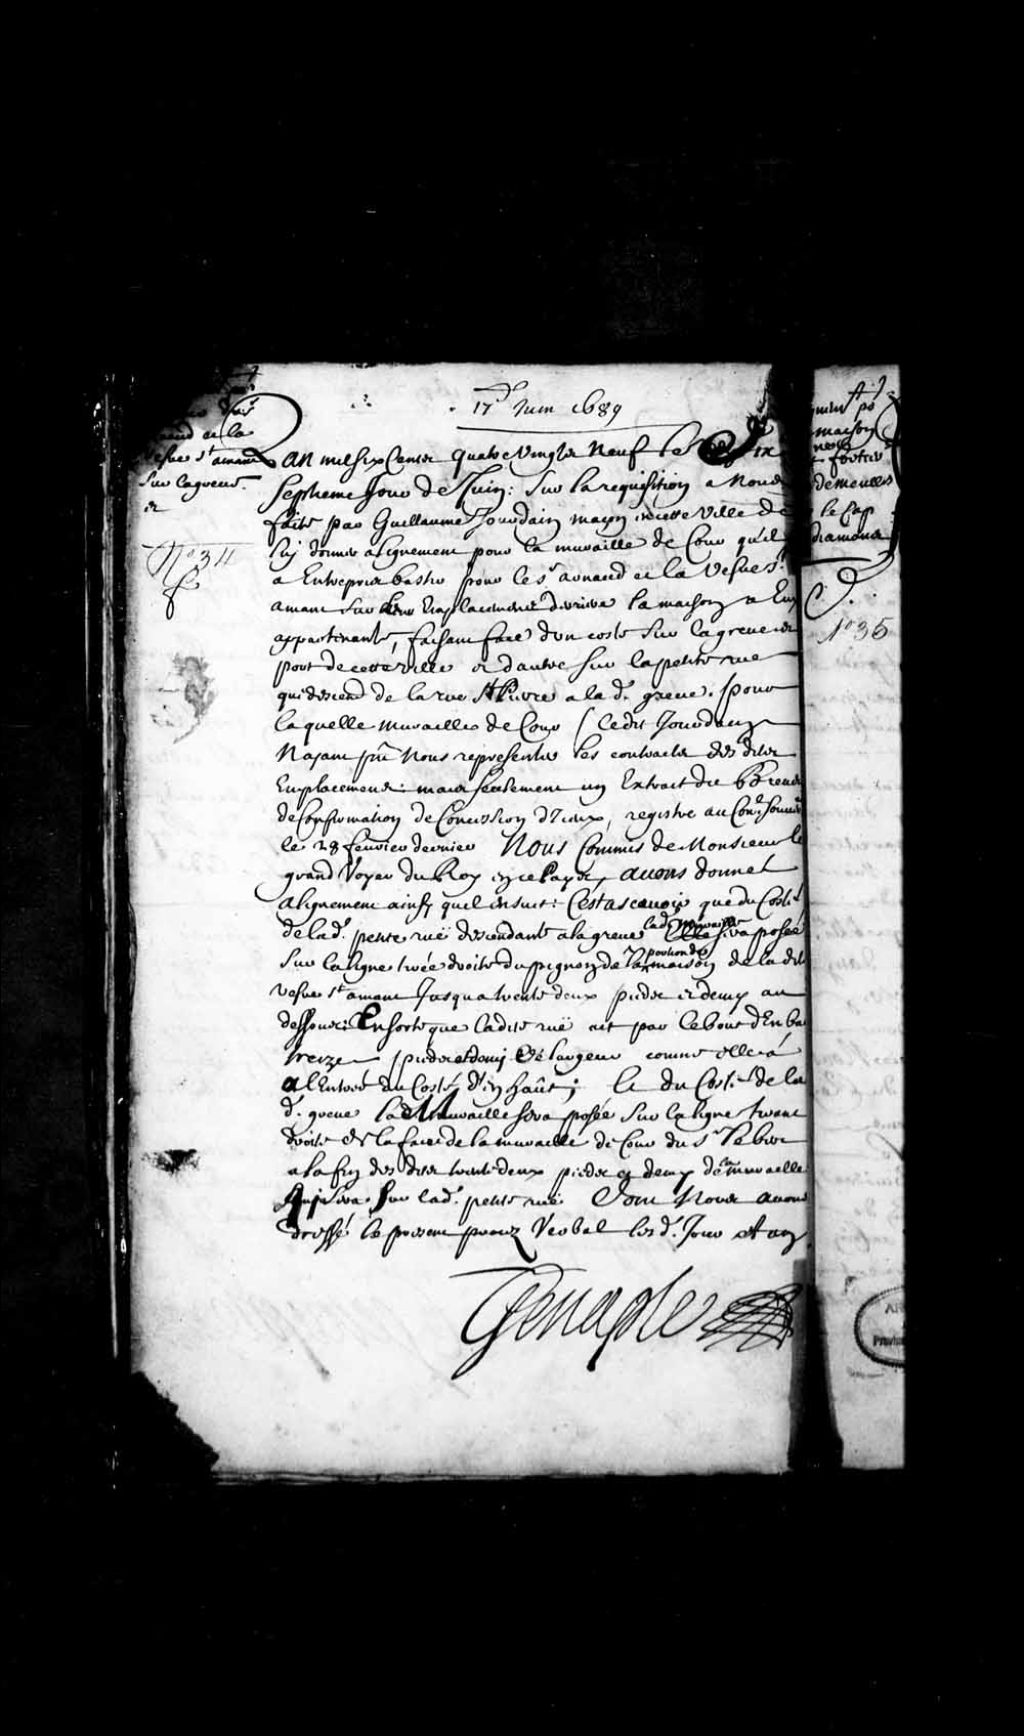 17e Juin 1689
Lan mil six Cents quatre vingts Neuf le Dix
Septieme Jour de Juin: Sur la requisition a Nous
faite par Guillaume Jourdain maçon en cette ville de
luy donner alignement pour la muraille de Cour qu'il
a Entrepris bastir pour le sr arnaud et la Vefue st
amant sur leur Emplacement derriere la maison a Eux
appartenante, faisant face d'un costé sur la greve et
port de cette ville et d'autre sur la petite rue
qui descend de la rue St Pierre a la d. greve. pour
laquelle murailles de Cour Cedit Jourdain
N'ayant pû Nous representer les contracts des dits
Emplacemens: mais seulement un Extrait du Brevet
de Confirmation de Concession d'Iceux, registré au Conl. Souvn
le 28 fevrier dernier Nous Commis de Monsieur le
grand Voyer du Roy en ce Pays, avons donné l
alignement ainsy quil ensuit: Cest ascavoir que du Costé
de lad. petite ruë descendante a la greve lad. muraille sera posée
sur la ligne tirée droite du pignon de la portion de maison de la dite
vefue st amant Jusqua trente deux pieds et demy au
dessous: En sorte que ladite ruë ait par le bout d'En bas
treize pieds et demi de largeur comme elle a
a l'Entrée du Costé d'en haût; Et du Costé de la
d. greve lad. Muraille sera posée sur la ligne tirant
droite de la face de la muraille de Cour du sr
a la fin des dits trente deux pieds et demy de la muraille
qui sera sur lad. petite ruë Dont Nous avons
dressé le present procez Verbal les d. Jour et an
Genaple
vefue st amant
sur la greve.
et
No 311
maison
demeulles
le Cap
diamant
C. D.
No 35